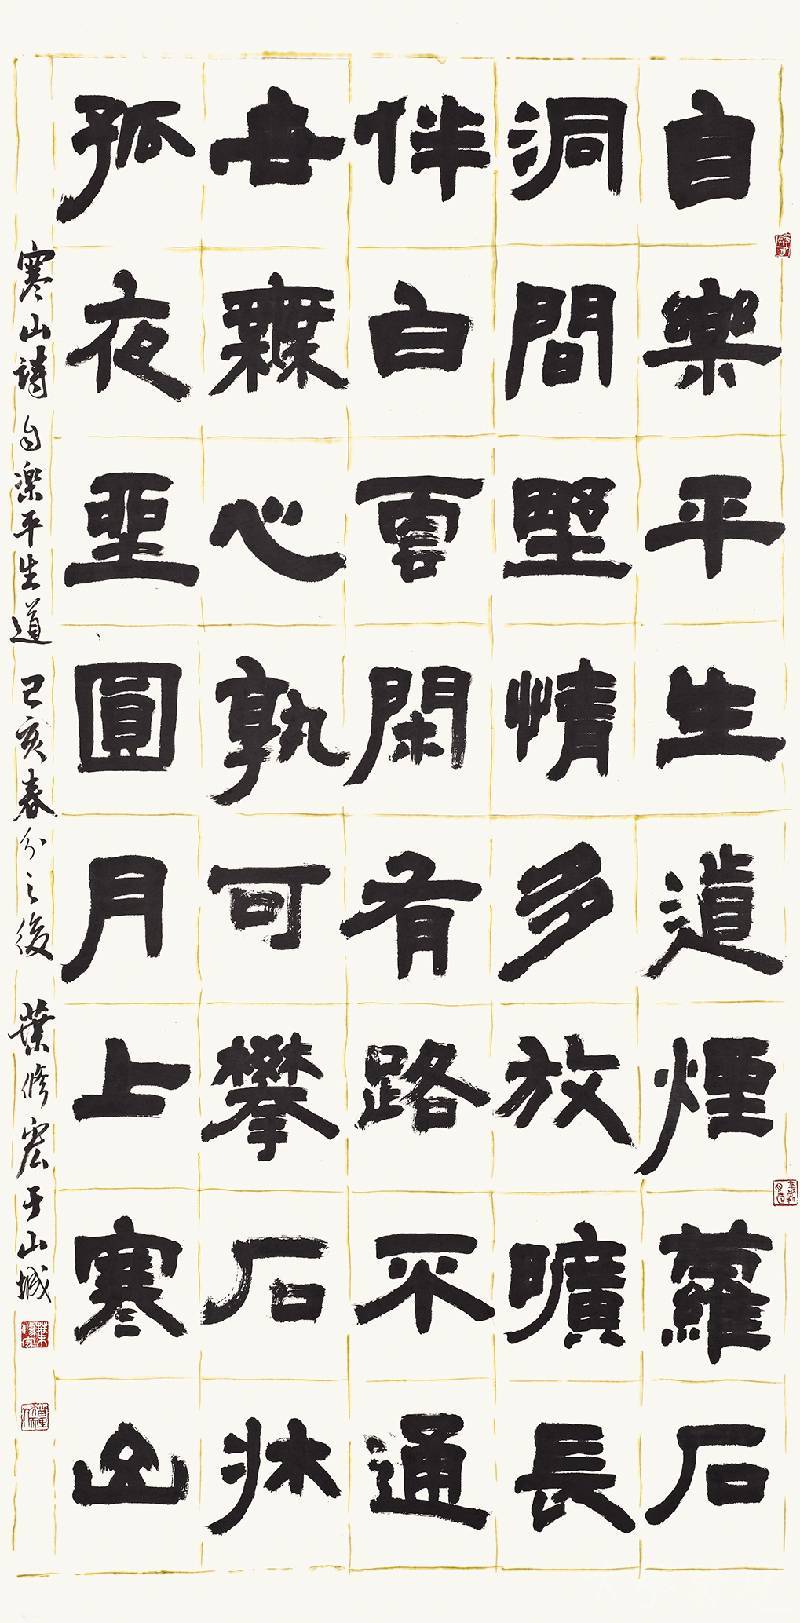 自樂平生道煙蘿石
洞間墅情多放曠長
伴白雲閑有路不通
世無心孰可攀石牀
孤夜坐圓月上寒山
寒山詩自樂平生道 己亥春分之後 葉修宏于山城